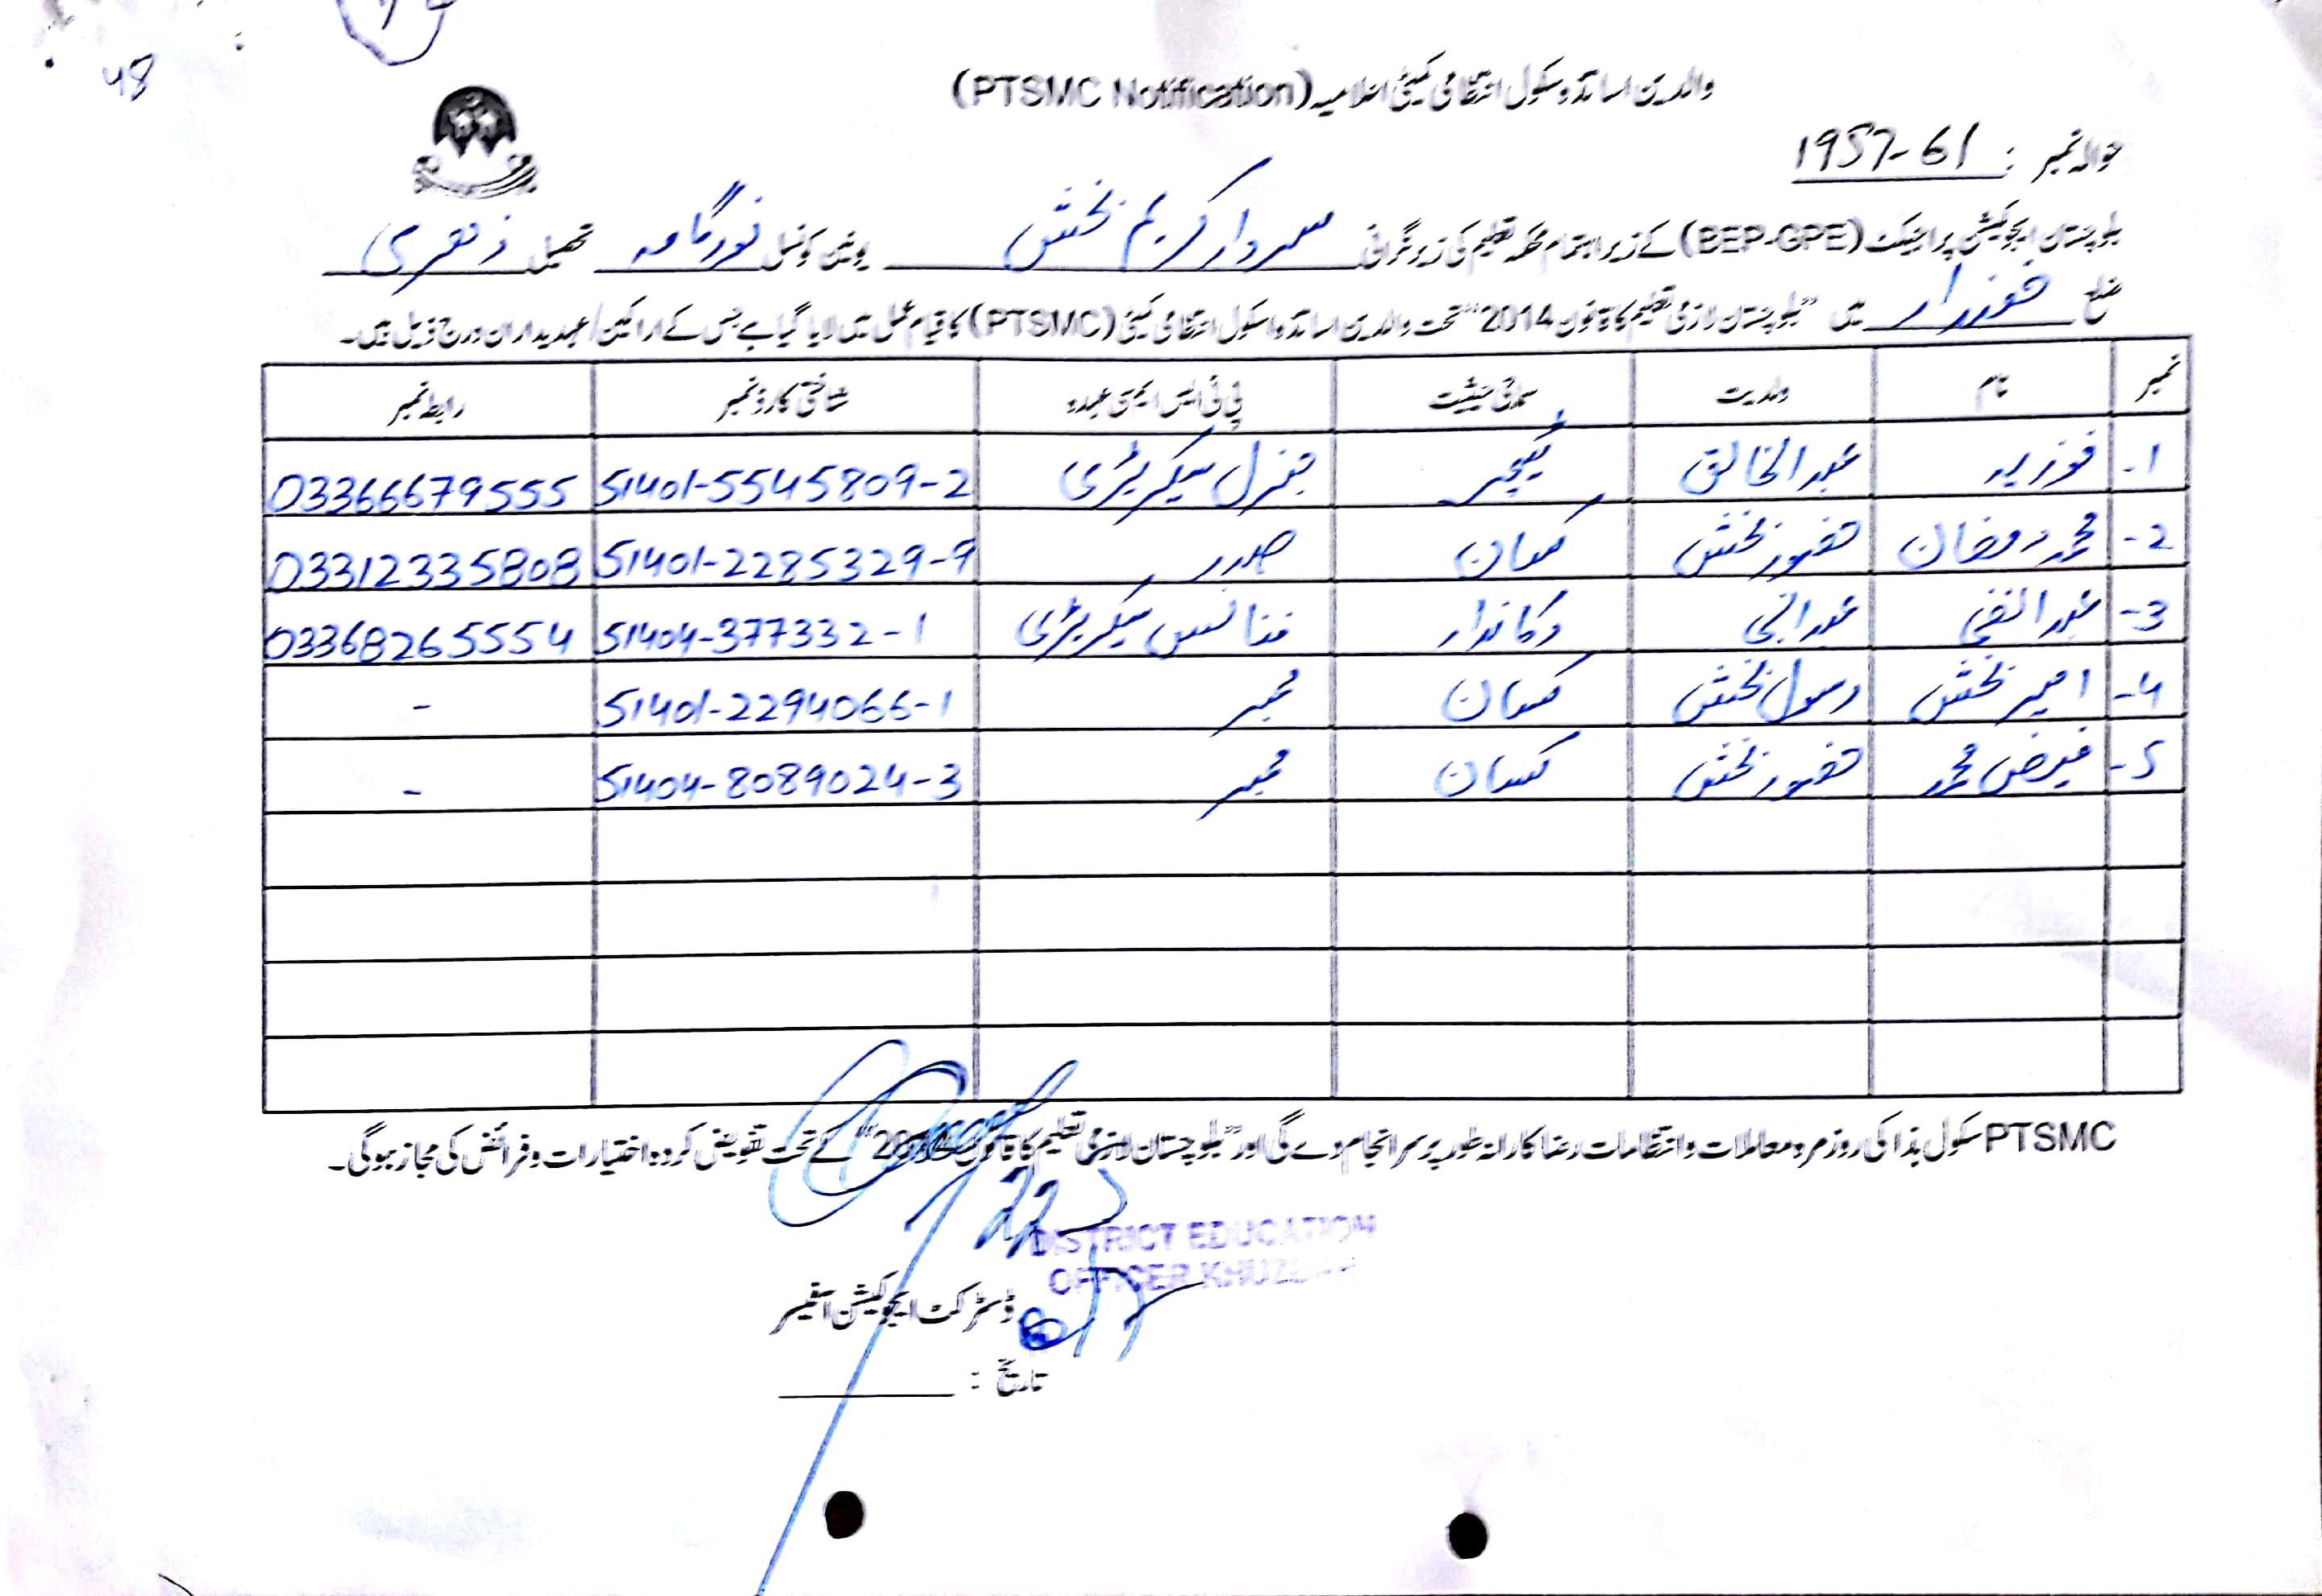 48
والدین اساتذہ سکول انتظامی کمیٹی اعلامیہ (PTSMC Notification)
حوالہ نمبر : 1957-61
بلوچستان ایجوکیشن پراجیکٹ (BEP-GPE) کے زیر اہتمام محکمہ تعلیم کی زیر نگرانی سردار کریم بخش یونین کونسل نورگامہ تحصیل زھری
ضلع خضدار میں "بلوچستان لازمی تعلیم کا قانون 2014" تحت والدین اساتذہ اسکول انتظامی کمیٹی (PTSMC) کا قیام عمل میں لایا گیا ہے جس کے اراکین / عہدیداران درج ذیل ہیں۔
نمبر نام ولدیت سماجی حیثیت پی ٹی ایس ایم سی عہدہ شناختی کارڈ نمبر رابطہ نمبر
1- فوزیہ عبدالخالق ٹیچر جنرل سیکریٹری 51401-5545809-2 03366679555
2- محمد رمضان خضور بخش کسان صدر 51401-2285329-9 03312335808
3- عبدالغنی عبدالنبی دکاندار فنانس سیکریٹری 51404-377332-1 03368265554
4- امیر بخش رسول بخش کسان ممبر 51401-2294066-1 -
5- فیض محمد خضور بخش کسان ممبر 51404-8089024-3 -
PTSMC سکول ہذا کی روزمرہ معاملات و انتظامات رضاکارانہ طور پر سرانجام دے گی اور "بلوچستان لازمی تعلیم کا قانون 2014" کے تحت تفویض کردہ اختیارات و فرائض کی مجاز ہوگی۔
DISTRICT EDUCATION
OFFICER KHUZDAR
ڈسٹرکٹ ایجوکیشن آفیسر
تاریخ :